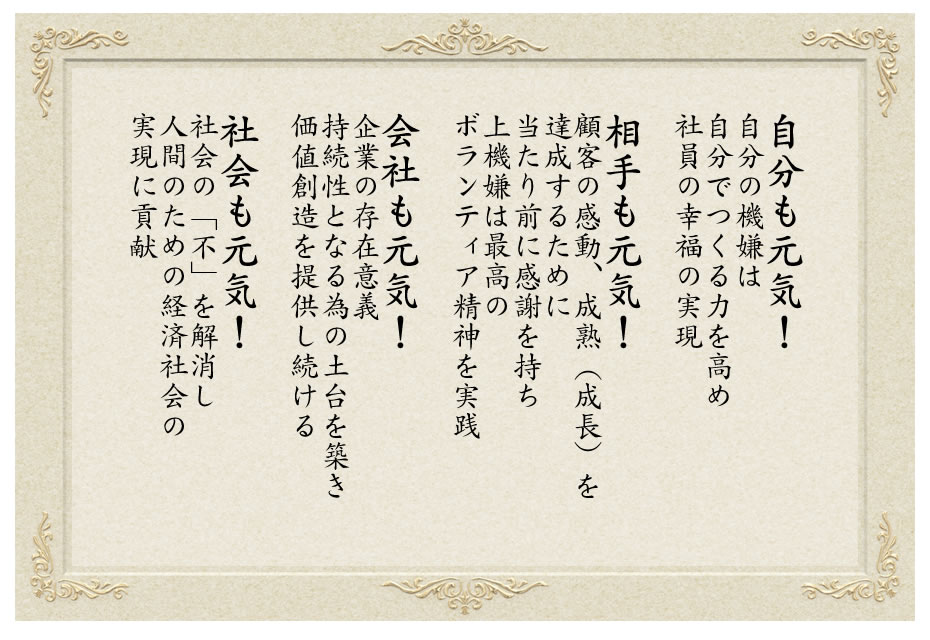 自分も元気！
自分の機嫌は
自分でつくる力を高め
社員の幸福の実現
相手も元気！
顧客の感動、成熟（成長）を
達成するために
当たり前に感謝を持ち
上機嫌は最高の
ボランティア精神を実践
会社も元気！
企業の存在意義
持続性となる為の土台を築き
価値創造を提供し続ける
社会も元気！
社会の「不」を解消し
人間のための経済社会の
実現に貢献